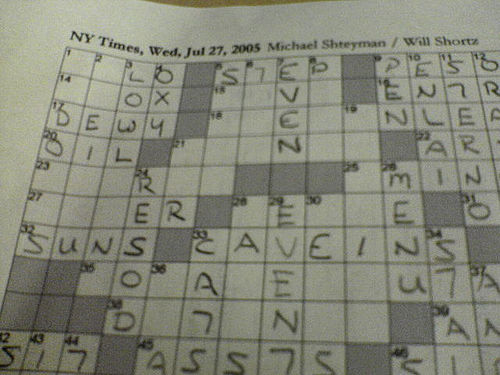 NY Times, Wed, Jul 27, 2005 Michael Shteyman / Will Shortz
1 2 3 L 4 O 5 S 6 T 7 E 8 P 9 P 10 E 11 S 12 O
14 O X 15 V 16 E N T R
17 D E W Y 18 E 19 N L E A
20 O I L 21 N 22 A R
23 24 R 25 26 M I N
27 E R 28 29 E 30 E 31 O
32 S U N S 33 C A V E I N 34 S
35 O 36 A E U T 37 A
38 D T N 39 A A
42 S 43 I 44 T 45 A S S T S 46 S I